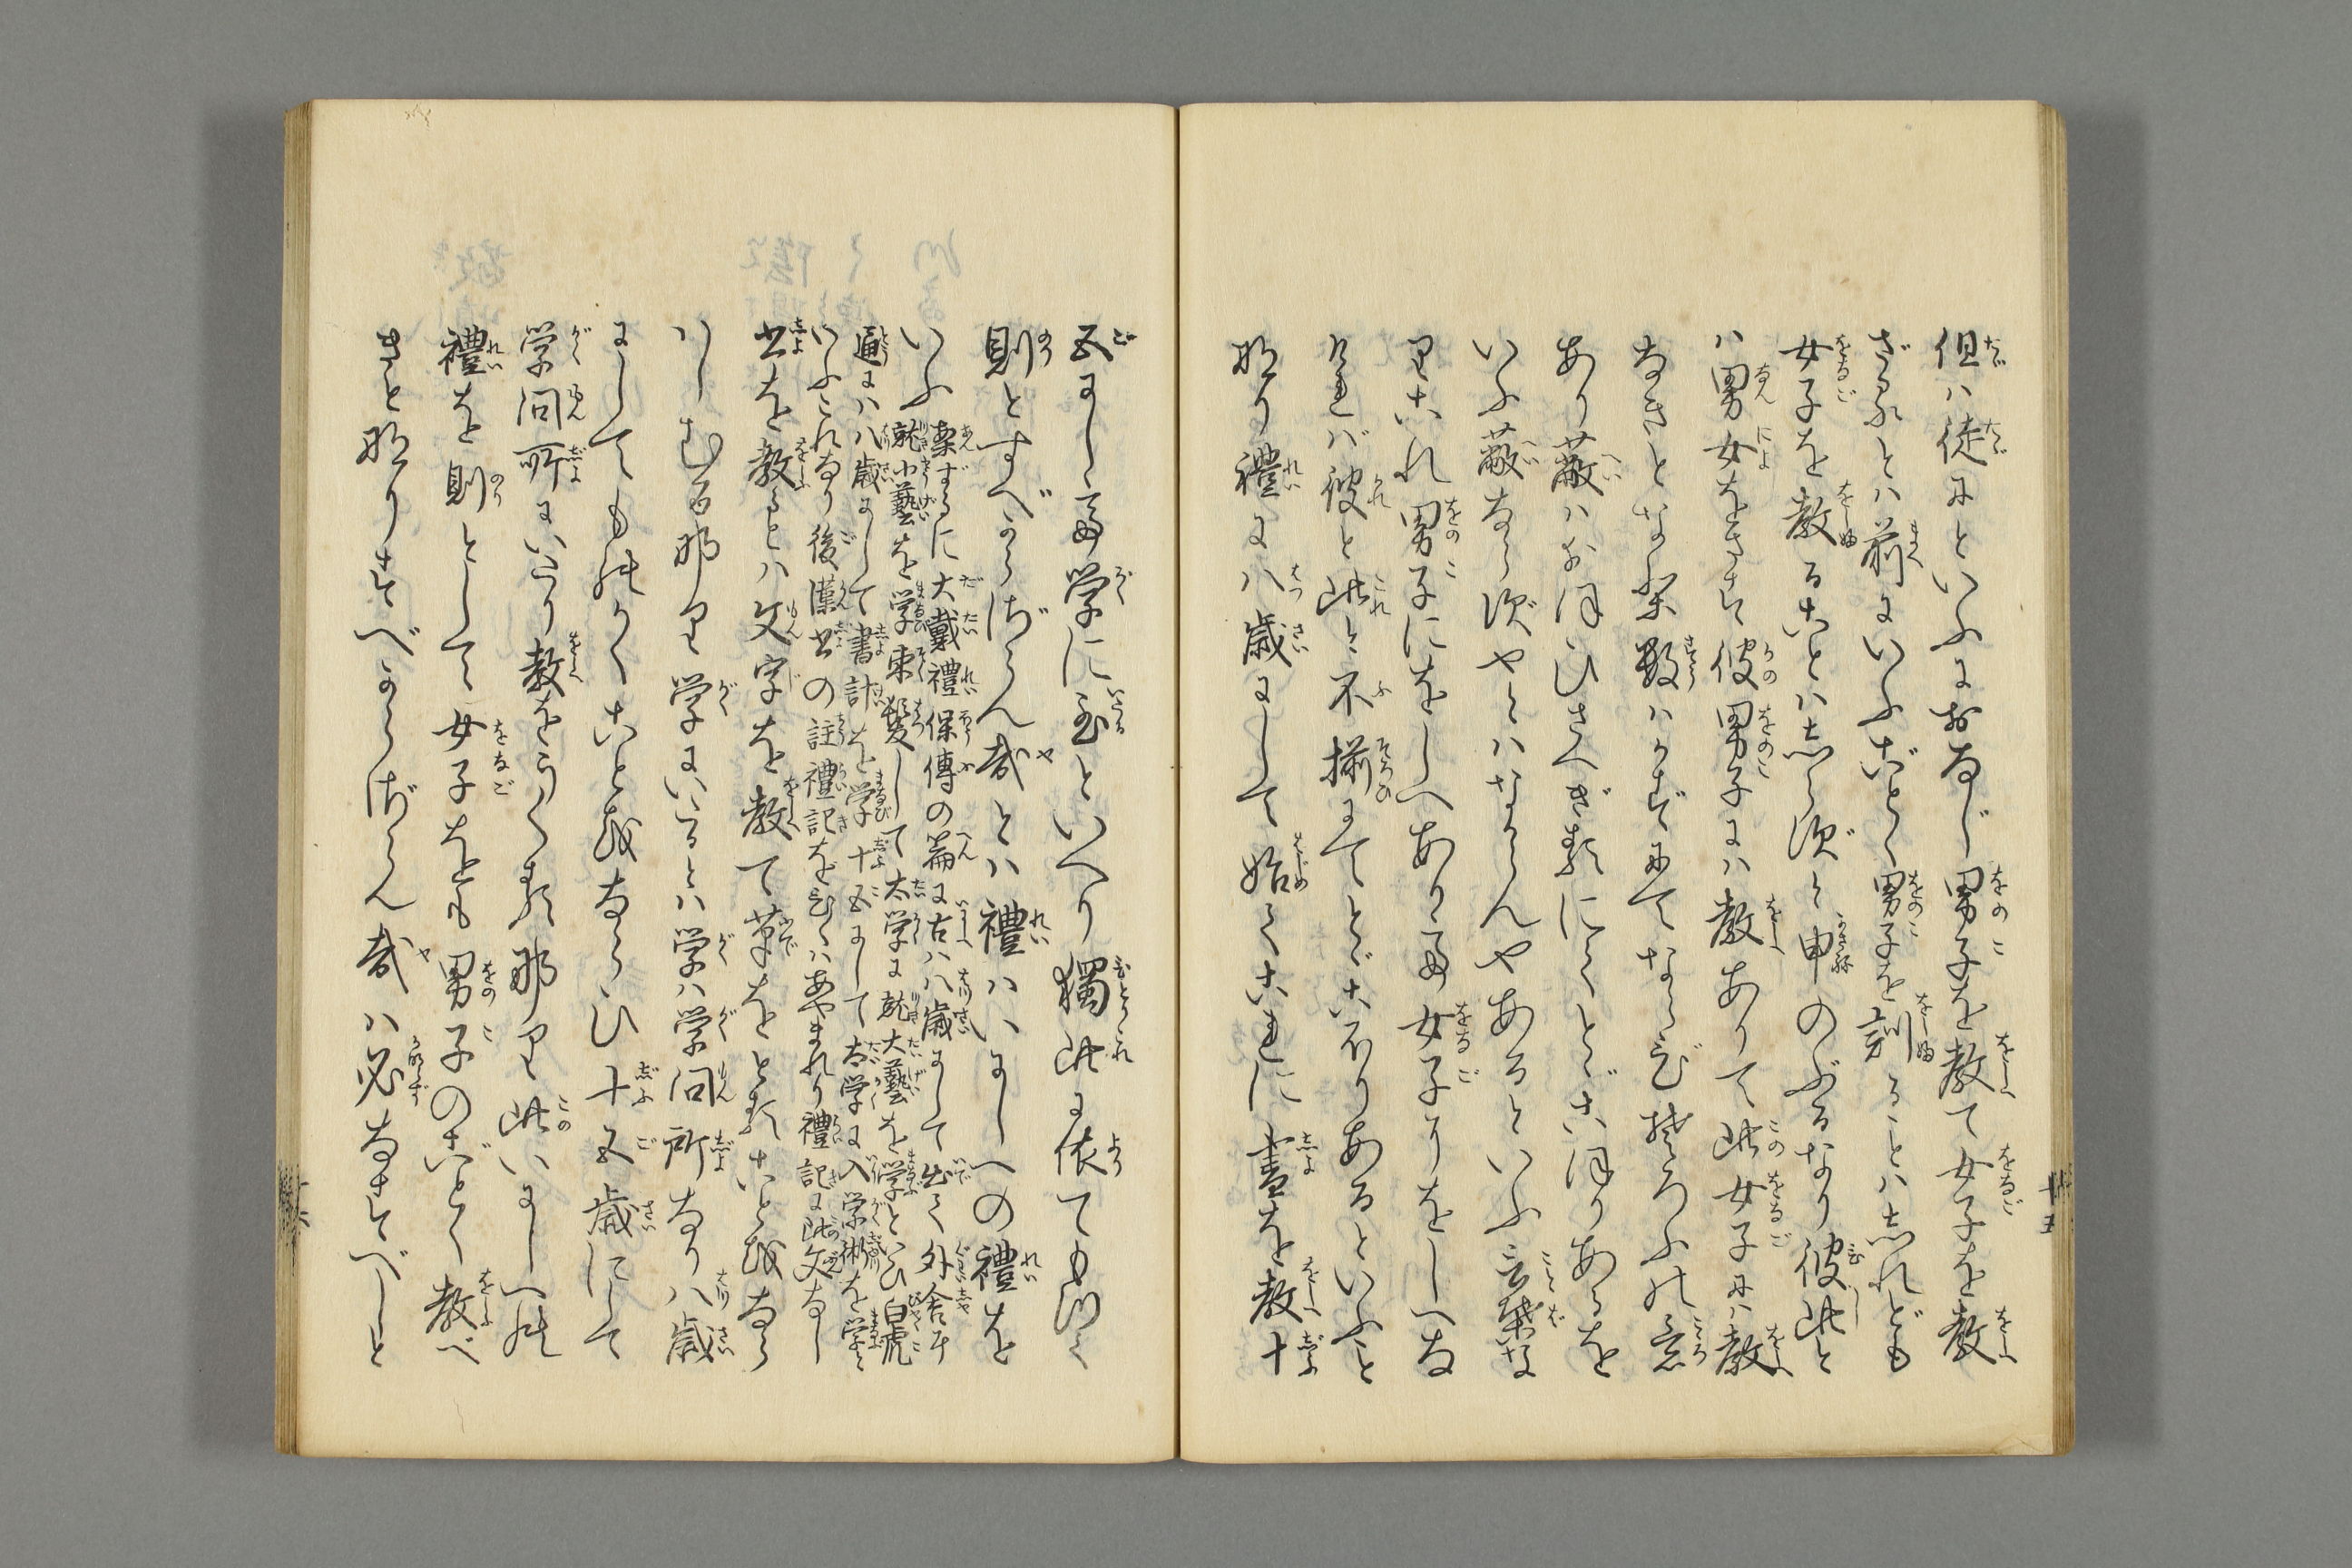 但ハ徒にといふにおなじ男子を教て女子を教
ざるとハ前にいふごとく男子を訓ることハしれども
女子を教ることハしらずと申のぶるなり彼此と
ハ男女をさす彼男子にハ教ありて此女子にハ教
なきとなり数ハかずにてならびそろふの意
あり蔽ハおほひさへぎるにてとゞこほりあるを
いふ蔽ならずやとハなからんやあるといふ言葉な
りこれ男子にをしへありて女子にをしへな
ければ彼と此と不揃にてとゞこほりあるといふこと
なり禮に八歳にして始てこれに書を教十
五にして学に至といへり獨此に依てもつて
則とすべからざらん哉とハ禮ハいにしへの禮を
いふ
案ずるに大戴禮保傳の篇に古ハ八歳にして出て外舎に
就小藝を学束髮して太学に就大藝を学といひ白虎
通にハ八歳にして書計を学十五にして太学に入学術を学と
いふこれなり後漢書の註禮記を引ハあやまれり禮記に此文なし
書を教るとハ文字を教て筆をとることをなら
ハしむる那り学にいるとハ学ハ学問所なり八歳
にしてものかくことをならひ十五歳にして
学問所にいり教をうくる那り此いにしへの
禮を則として女子をも男子のごとく教べ
きとなりすべからざらん哉ハ必なすべしと
十五